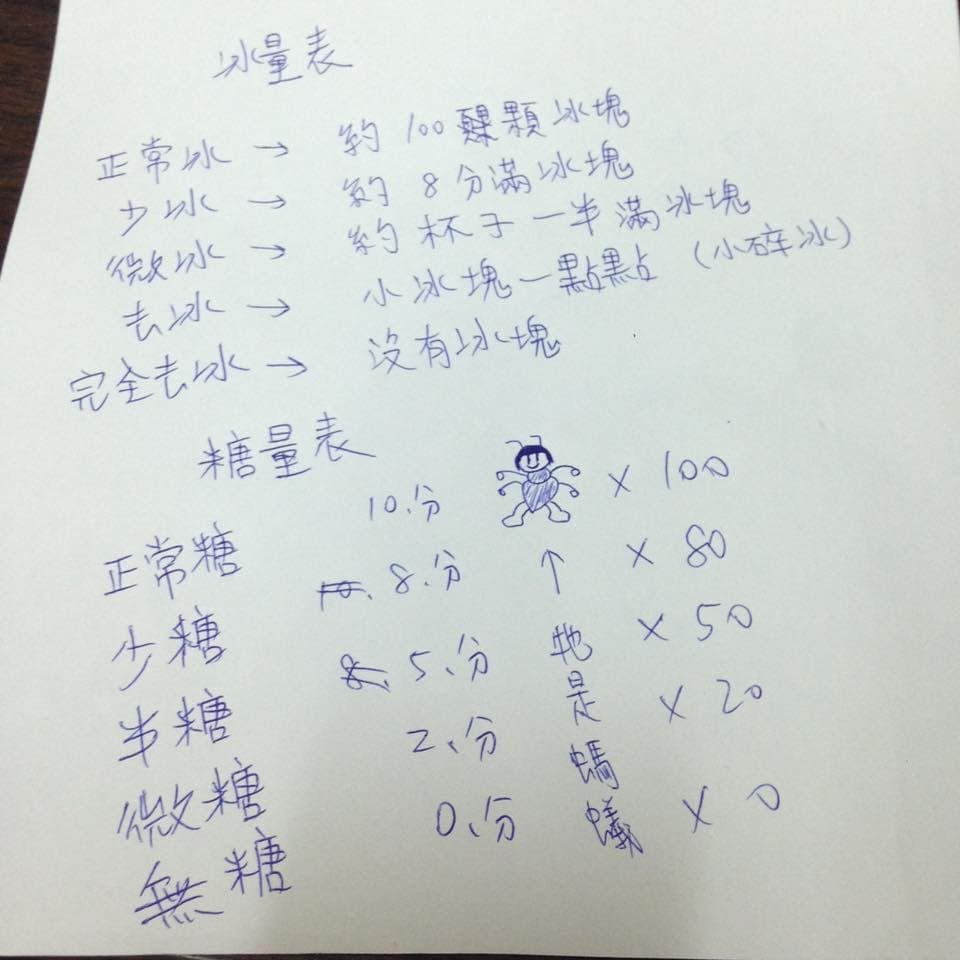 冰量表
正常冰 → 約 100 顆冰塊
少冰 → 約 8 分滿冰塊
微冰 → 約 杯子一半滿冰塊
去冰 → 小冰塊一點點 (小碎冰)
完全去冰 → 沒有冰塊
糖量表
正常糖 10.分 × 100
少糖 8.分 ↑ × 80
半糖 5.分 牠 × 50
微糖 2.分 是 × 20
無糖 0.分 螞蟻 × 0